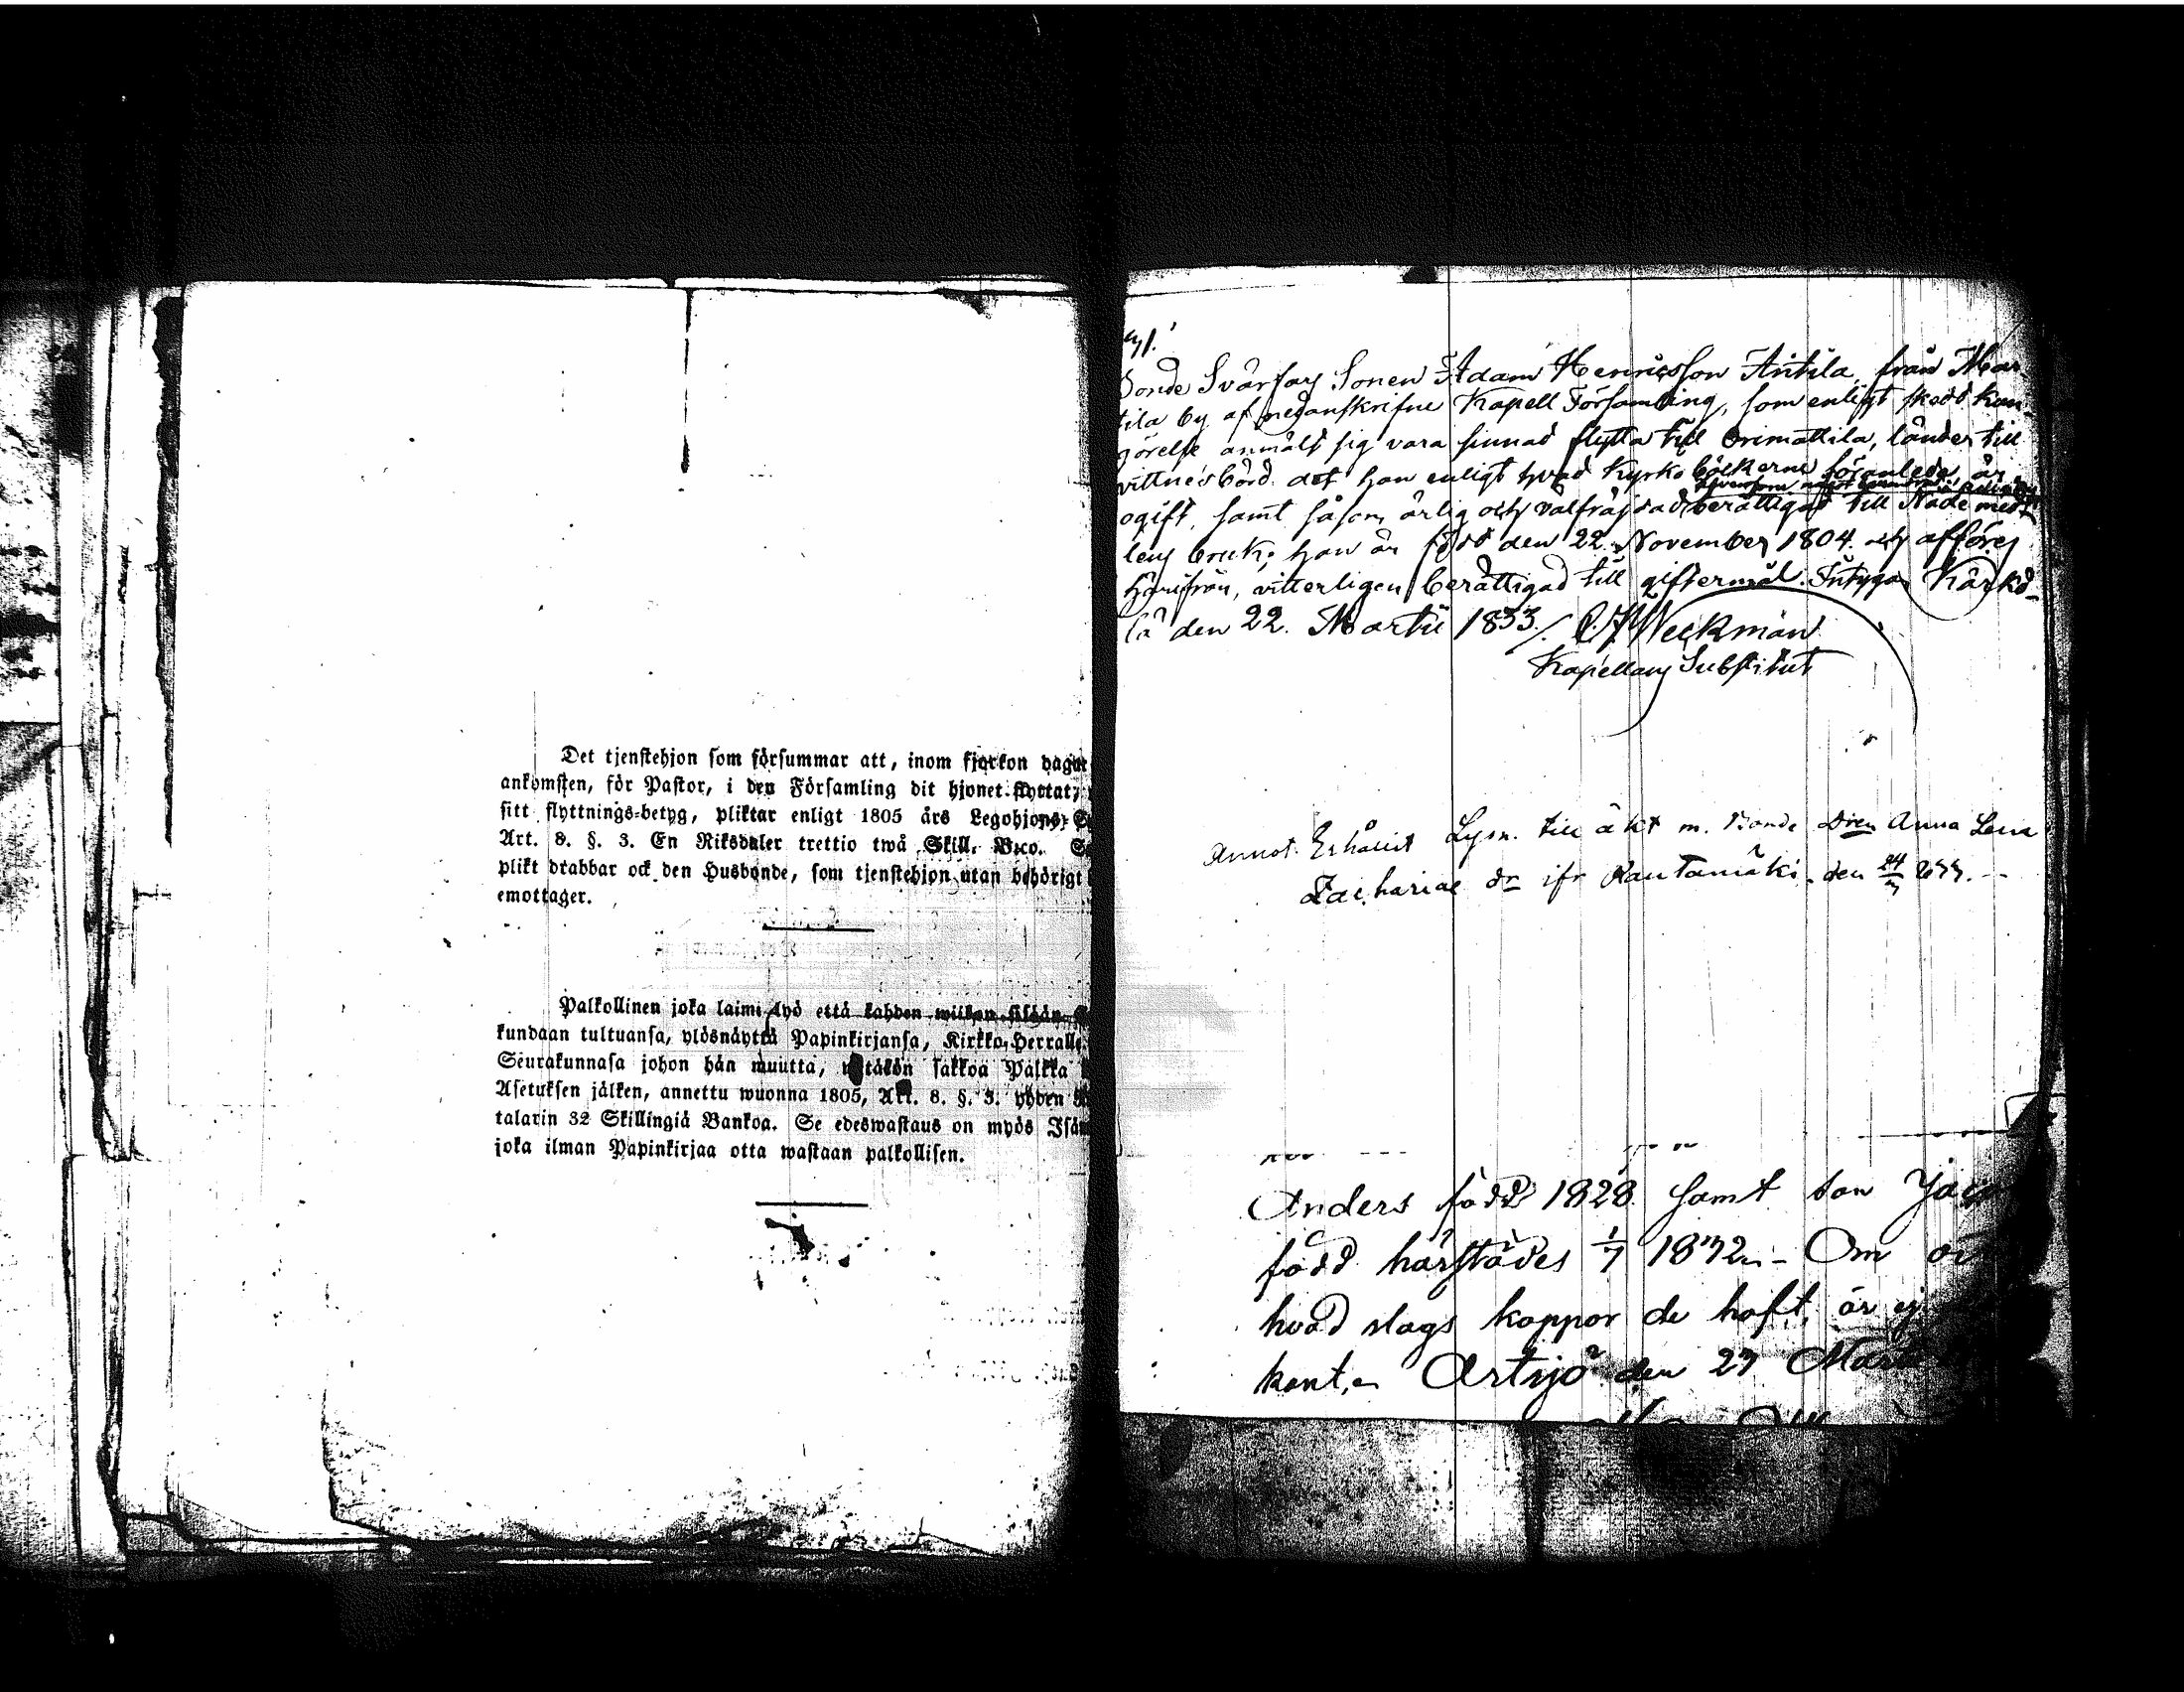 Det tjenstehjon som försummar att, inom fjorton dagar
ankomsten, för Pastor, i den Församling dit hjonet flyttat,
sitt flyttnings-betyg, pliktar enligt 1805 års Legohjons-
Art. 8. §. 3. En Riksdaler trettio twå Skill. B:co.
plikt drabbar ock den Husbonde, som tjenstehjon utan behörigt
emottager.
Palkollinen joka laimilyö että kahden wiikon sisään
kundaan tultuansa, ylösnäyttä Papinkirjansa, Kirkko-Herralle,
Seurakunnasa johon hän muutta, sakkoa Palkka
Asetuksen jälken, annettu wuonna 1805, Art. 8. §. 3. yhden
talarin 32 Skillingiä Bankoa. Se edeswastaus on myös
joka ilman Papinkirjaa otta wastaan palkollisen.
71.
Bonde Svärfars Sonen Adam Henricsson Antila från Mar
tila by af nedanskrifne Kapell Församling, som enligt skedd kun-
görelse anmält sig vara sinnad flytta till Orimattila, länder till
vittnesbörd att han enligt hvad Kyrko böckerne föranleda är
ogift, samt såsom ärlig och välfräjdad berättigad till Nade med
lens bruk; han är född den 22. November 1804. och afföres
härifrån, vitterligen berättigad till giftermål. Intygar Kärkö-
lä den 22. Martii 1833. Weckman
Kapellans Substitut
Annot. Erhållit Lysn. till äkt m. Bonde Dren Anna Lena
Zachariae dr ifr Rautamäki den 24
Anders född 1828. samt son
född härstädes 1/7 1832. - Om
hvad slags koppor de haft, är ej
kant. Artsjö den 27